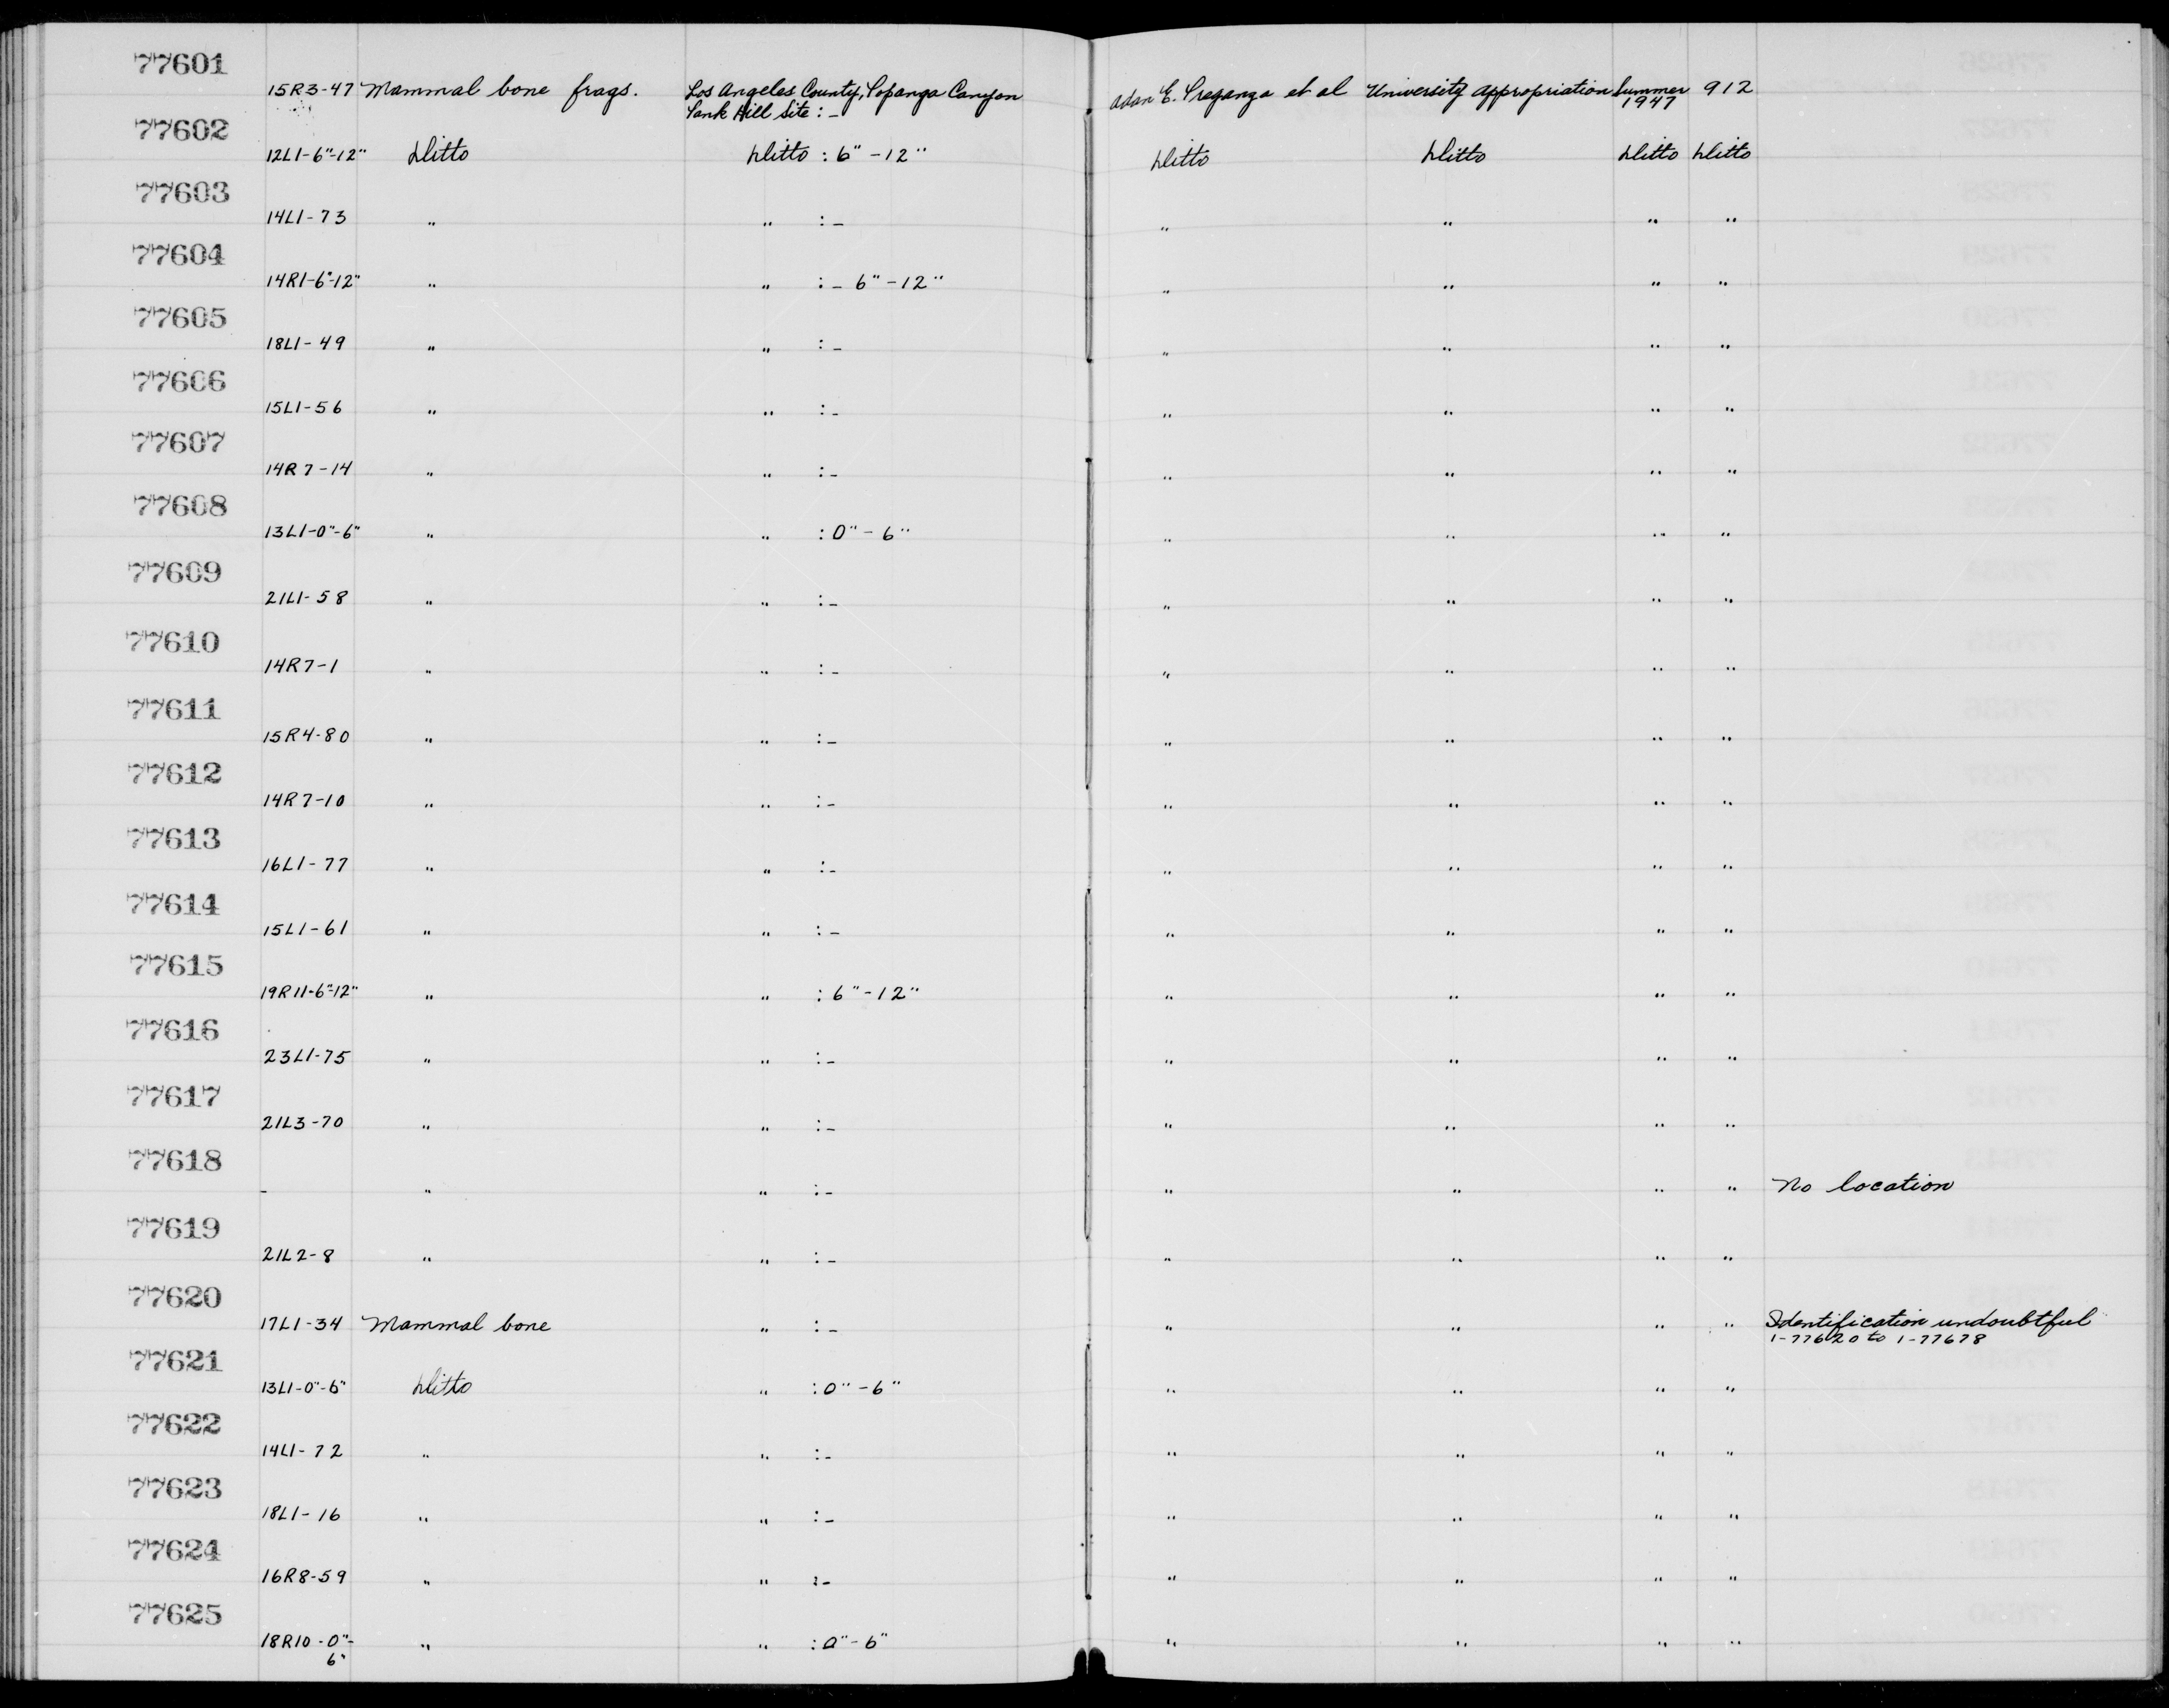 77601
15R3-47 Mammal bone frags. Los Angeles County, Topanga Canyon Adan E. Treganza et al University appropriation Summer 912
Tank Hill Site : - 1947
77602
12L1-6"-12" Ditto Ditto : 6" - 12" Ditto Ditto Ditto Ditto
77603
14L1-73 " " : - " " " "
77604
14R1-6"-12" " " : - 6" - 12" " " " "
77605
18L1-49 " " : - " " " "
77606
15L1-56 " " : - " " " "
77607
14R7-14 " " : - " " " "
77608
13L1-0"-6" " " : 0" - 6" " " " "
77609
21L1-58 " " : - " " " "
77610
14R7-1 " " : - " " " "
77611
15R4-80 " " : - " " " "
77612
14R7-10 " " : - " " " "
77613
16L1-77 " " : - " " " "
77614
15L1-61 " " : - " " " "
77615
19R11-6"-12" " " : 6" - 12" " " " "
77616
23L1-75 " " : - " " " "
77617
21L3-70 " " : - " " " "
77618
- " " : - " " " " No location
77619
21L2-8 " " : - " " " "
77620
17L1-34 Mammal bone " : - " " " " Identification undoubtful
1-77620 to 1-77678
77621
13L1-0"-6" Ditto " : 0" - 6" " " " "
77622
14L1-72 " " : - " " " "
77623
18L1-16 " " : - " " " "
77624
16R8-59 " " : - " " " "
77625
18R10-0"- " " : 0" - 6" " " " "
6"